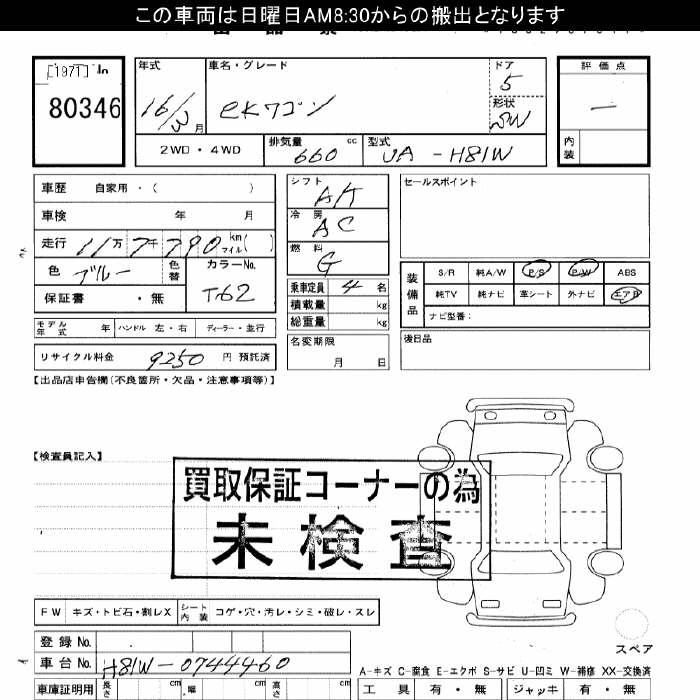 この車両は日曜日AM8:30からの搬出となります
80346
年式
16/3月
車名・グレード
eKワゴン
ドア
5
形状
SW
評価点
―
内装
2WD・4WD
排気量 660 cc
型式 UA-H81W
車歴 自家用・( )
車検 年 月
走行 11万7千790 km マイル( )
色 ブルー 色替
カラーNo. T62
保証書 ・無
シフト AT
冷房 AC
燃料 G
乗車定員 4 名
積載量 kg
総重量 kg
名変期限
月 日
セールスポイント
装備品
S/R 純A/W P/S P/W ABS
純TV 純ナビ 革シート 外ナビ エアB
ナビ型番:
後日品
モデル年式 年 ハンドル 左・右 ディーラー・並行
リサイクル料金 9250 円 預託済
【出品店申告欄(不良箇所・欠品・注意事項等)】
【検査員記入】
買取保証コーナーの為
未検査
FW キズ・トビ石・割レX シート内装 コゲ・穴・汚レ・シミ・破レ・スレ
スペア
登録No.
車台No. H81W-0744460
A-キズ C-腐食 E-エクボ S-サビ U-凹ミ W-補修 XX-交換済
車庫証明用 長さ cm 幅 cm cm
工具 有・無 ジャッキ 有・無